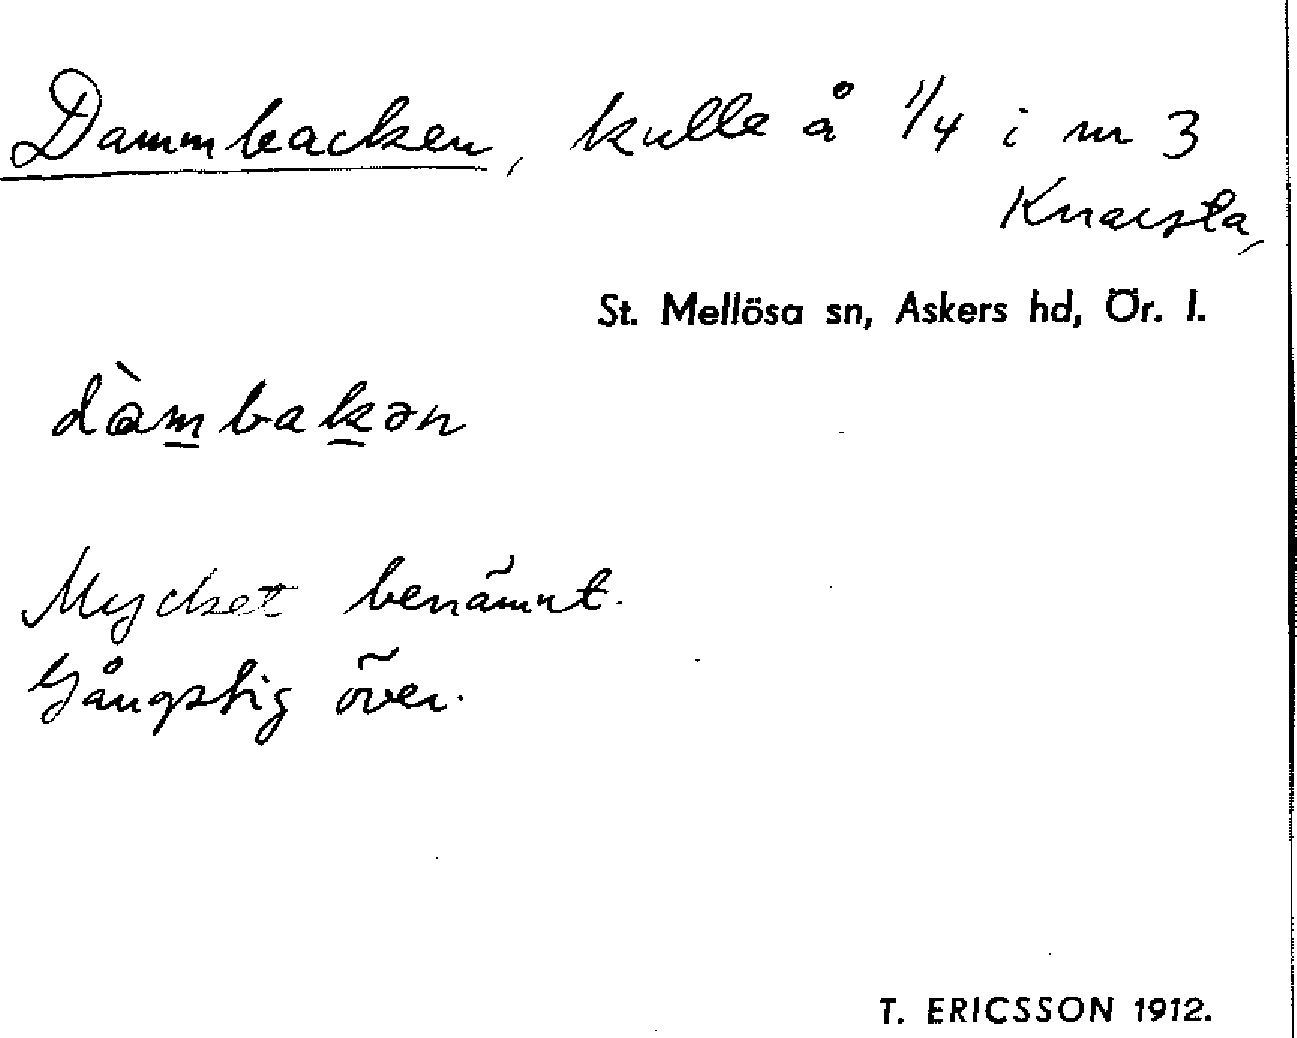 Dammbacken, kulle å 1/4 i nr 3
Knarsta,
St. Mellösa sn, Askers hd, Ör. l.
dàmbakən
Mycket benämnt.
Gångstig över.
T. ERICSSON 1912.